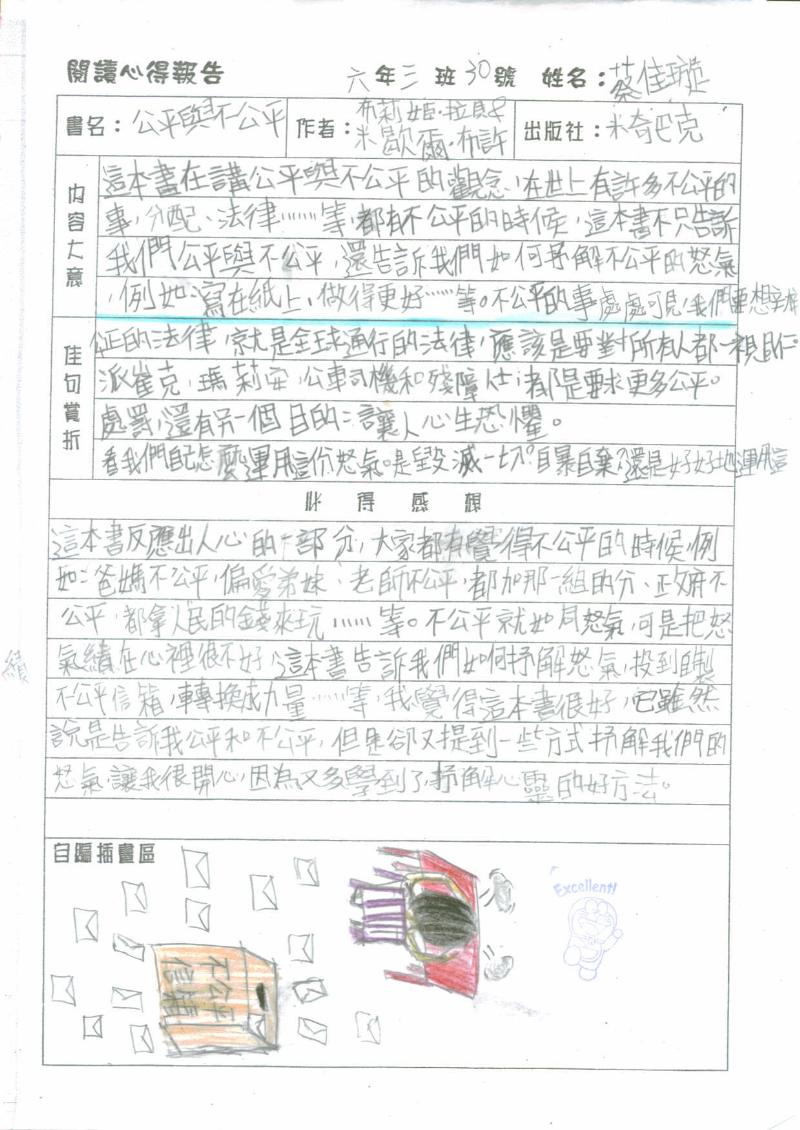 閱讀心得報告 六年三班30號 姓名：蔡佳璇
書名：公平與不公平 作者：布莉姬‧拉貝&米歇爾‧布許 出版社：米奇巴克
內容大意
這本書在講公平與不公平的觀念，在世上有許多不公平的
事，分配、法律……等，都有不公平的時候，這本書不只告訴
我們公平與不公平，還告訴我們如何抒解不公平的怒氣
，例如：寫在紙上，做得更好……等。不公平的事處處可見，我們要想辦
佳句賞析
公正的法律，就是全球通行的法律，應該是要對所有人都一視同仁。
派崔克，瑪莉安，公車司機和殘障人士：都是要求更多公平。
處罰，還有另一個目的：讓人心生恐懼。
看我們自己怎麼運用這份怒氣。是毀滅一切？自暴自棄？還是好好地運用這
心得感想
這本書反應出人心的一部分，大家都有覺得不公平的時候，例
如：爸媽不公平，偏愛弟妹、老師不公平，都加那一組的分、政府不
公平，都拿人民的錢來玩……等。不公平就如同怒氣，可是把怒
氣績在心裡很不好，這本書告訴我們如何抒解怒氣，投到自製
不公平信箱，轉換成力量……等，我覺得這本書很好，它雖然
說是告訴我公平和不公平，但是卻又提到一些方式抒解我們的
怒氣，讓我很開心，因為又多學到了，抒解心靈的好方法。
績
自編插畫區
Excellent!
不公平
信箱